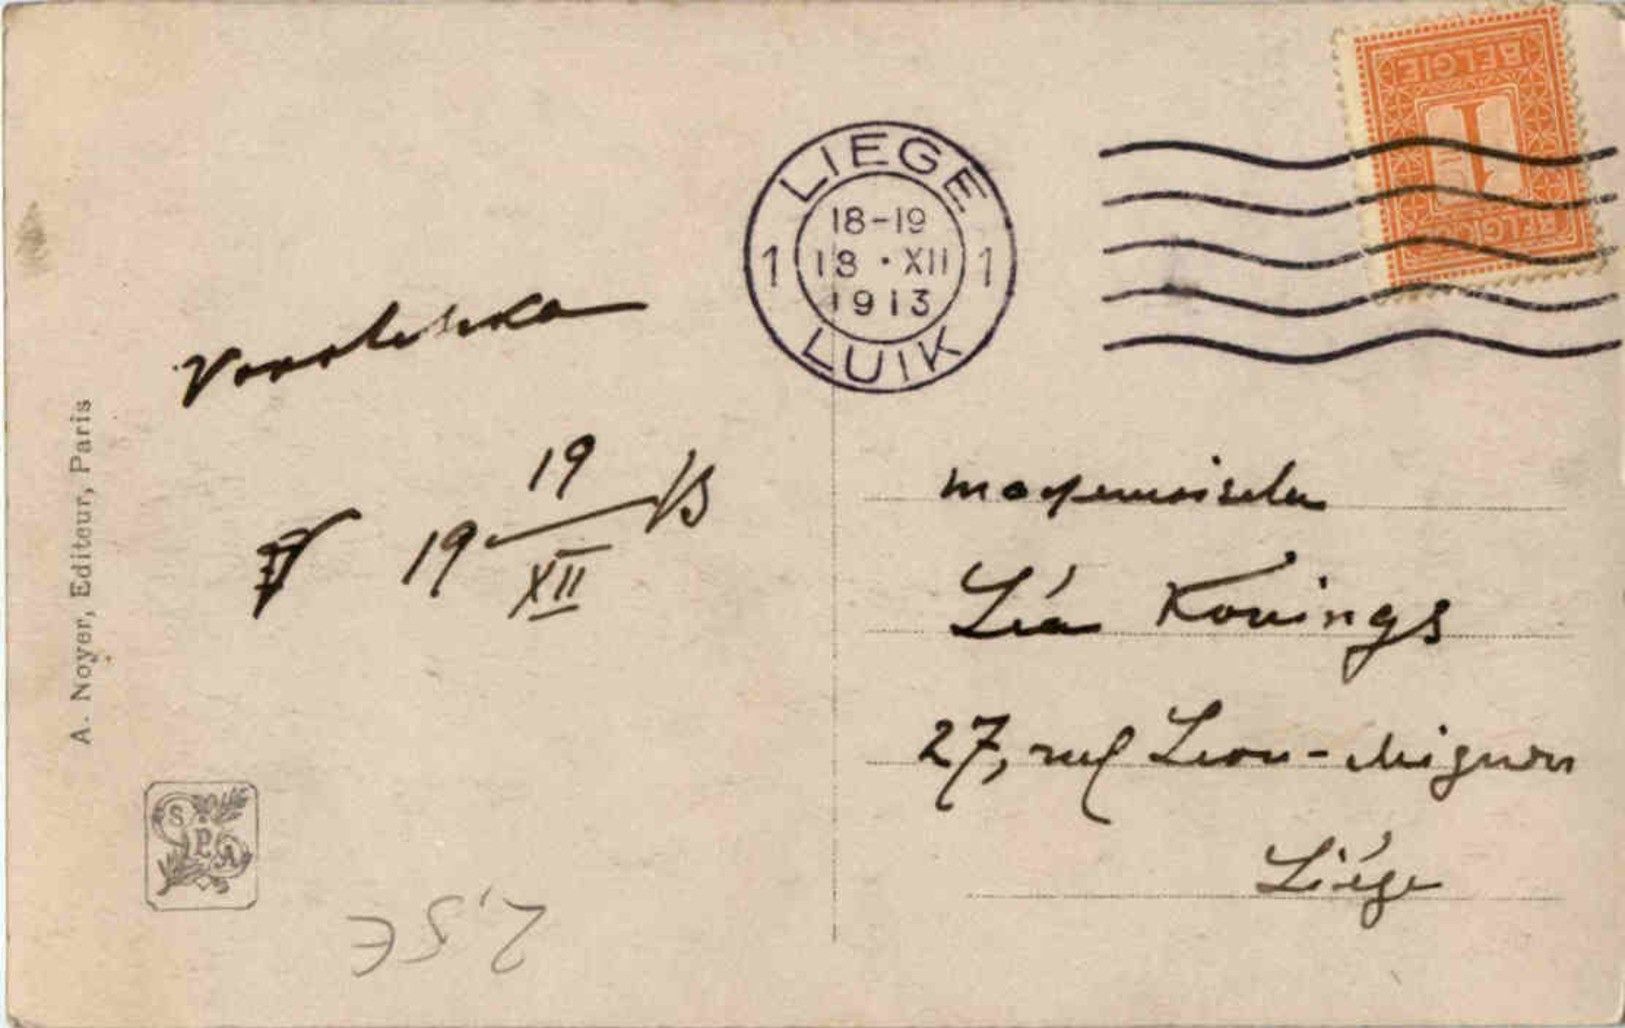 BELGIE
1
BELGIQUE
LIEGE
18-19
1 18 · XII 1
1913
LUIK
19
19 XII 13
Mademoiselle
Léa Konings
27, rue Léon-Mignon
Liége
A. Noyer, Editeur, Paris
S P A
2.5€